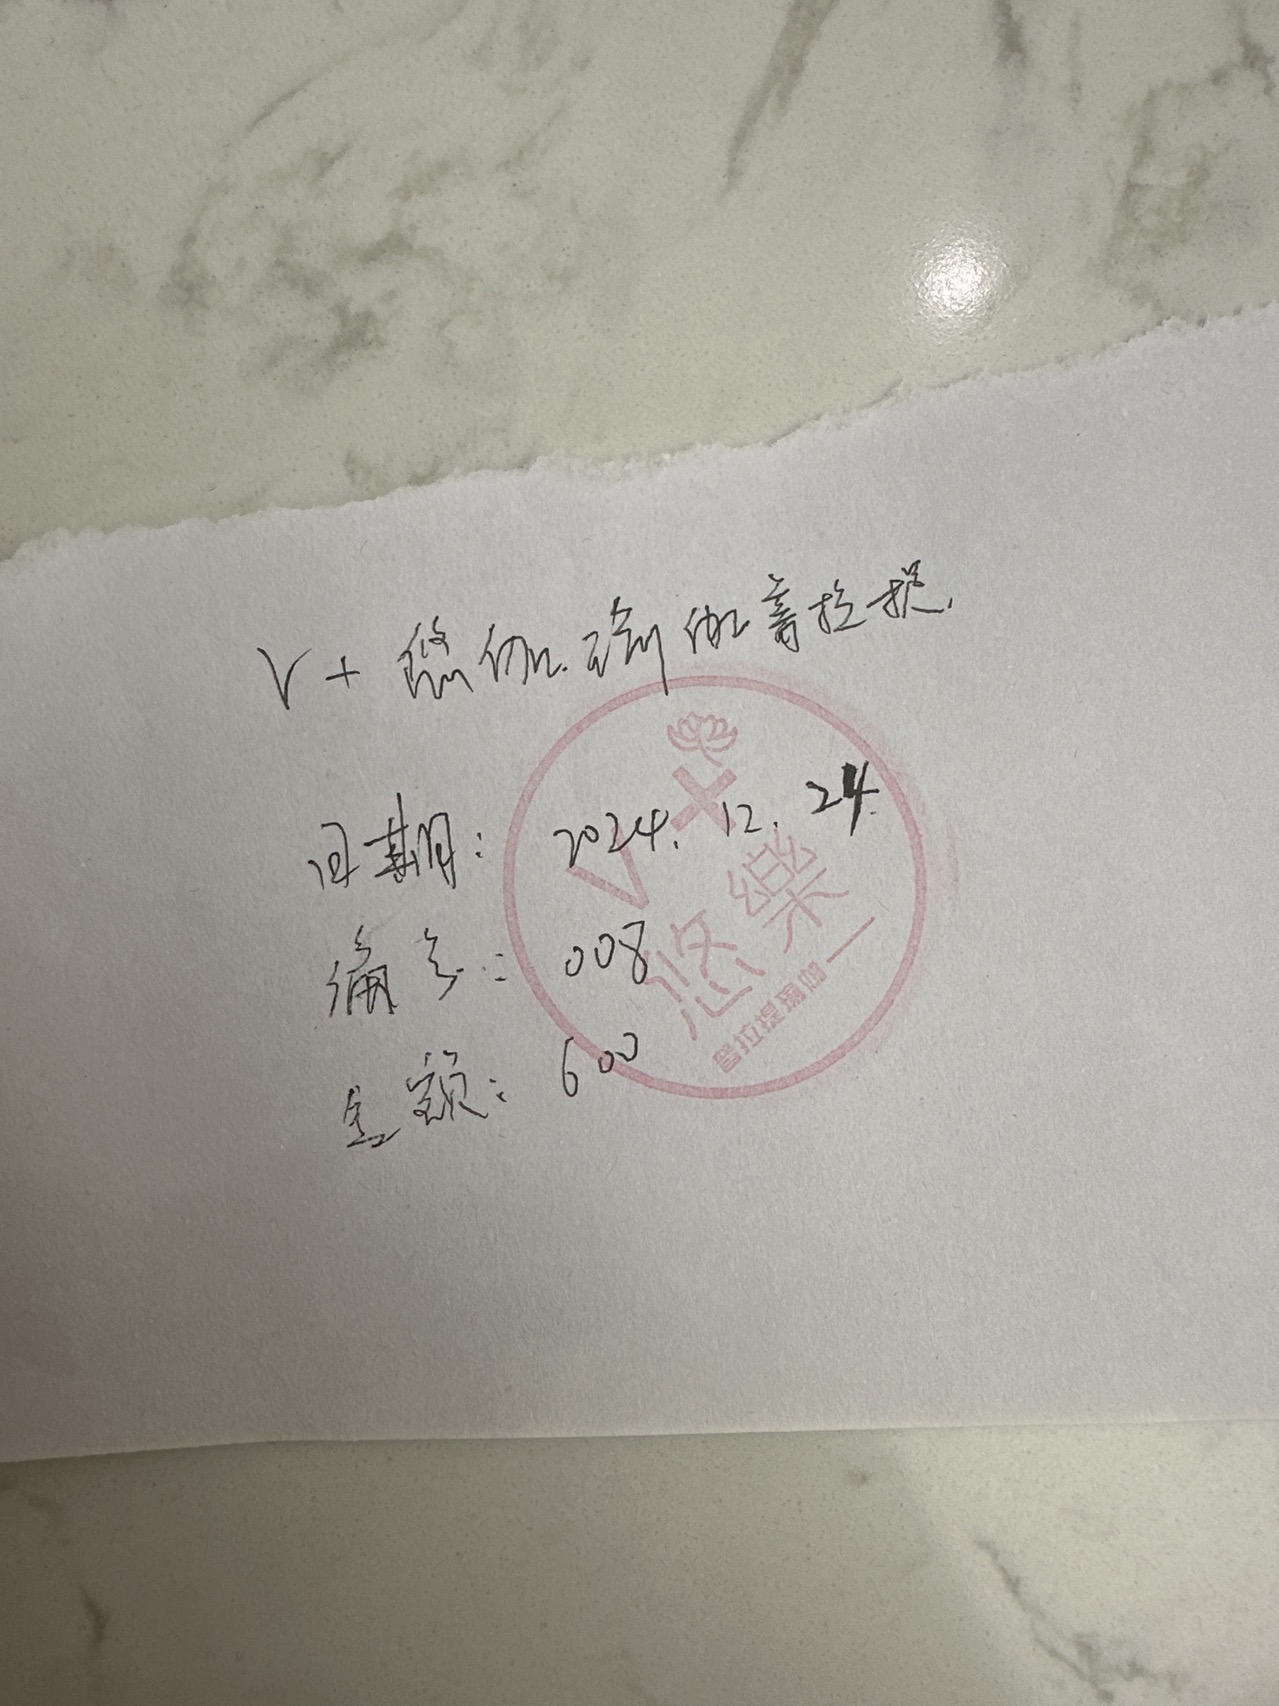 V+ 悠伽.瑜伽普拉提.
日期: 2024.12.24.
编号: 008
金额: 600
V+
悠樂
普拉提瑜伽